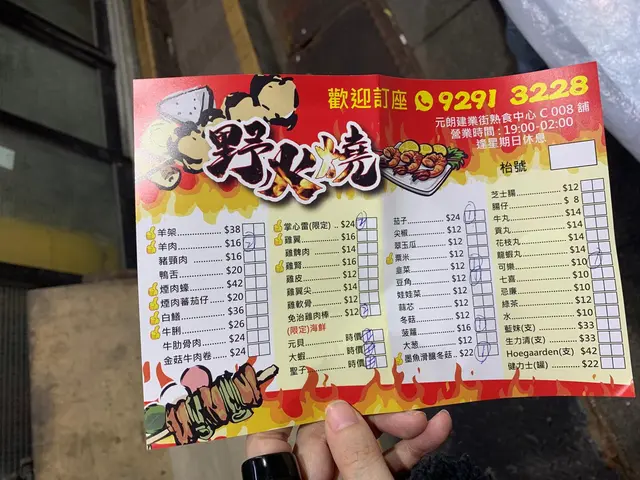 歡迎訂座 9291 3228
元朗建業街熱食中心 C 008 舖
營業時間 : 19:00-02:00
逢星期日休息
野火燒
枱號
羊架 $38
羊肉 $16
豬頸肉 $16
鴨舌 $20
煙肉蠔 $42
煙肉蕃茄仔 $20
白鱔 $36
牛脷 $26
牛肋骨肉 $24
金菇牛肉卷 $24
掌心雷(限定) $24
雞翼 $16
雞髀肉 $14
雞腎 $16
雞皮 $12
雞翼尖 $14
雞軟骨 $12
免治雞肉棒 $12
(限定)海鮮
元貝 時價
大蝦 時價
聖子 時價
茄子 $24
尖椒 $12
翠玉瓜 $12
粟米 $12
韮菜 $12
豆角 $12
娃娃菜 $12
絲芯 $12
冬菇 $12
菠蘿 $16
大葱 $12
墨魚滑釀冬菇 $22
芝士腸 $12
腸仔 $ 8
牛丸 $14
貢丸 $14
花枝丸 $14
龍蝦丸 $14
可樂 $10
七喜 $10
忌廉 $10
綠茶 $12
水 $10
藍妹(支) $33
生力清(支) $33
Hoegaarden(支) $42
健力士(罐) $22